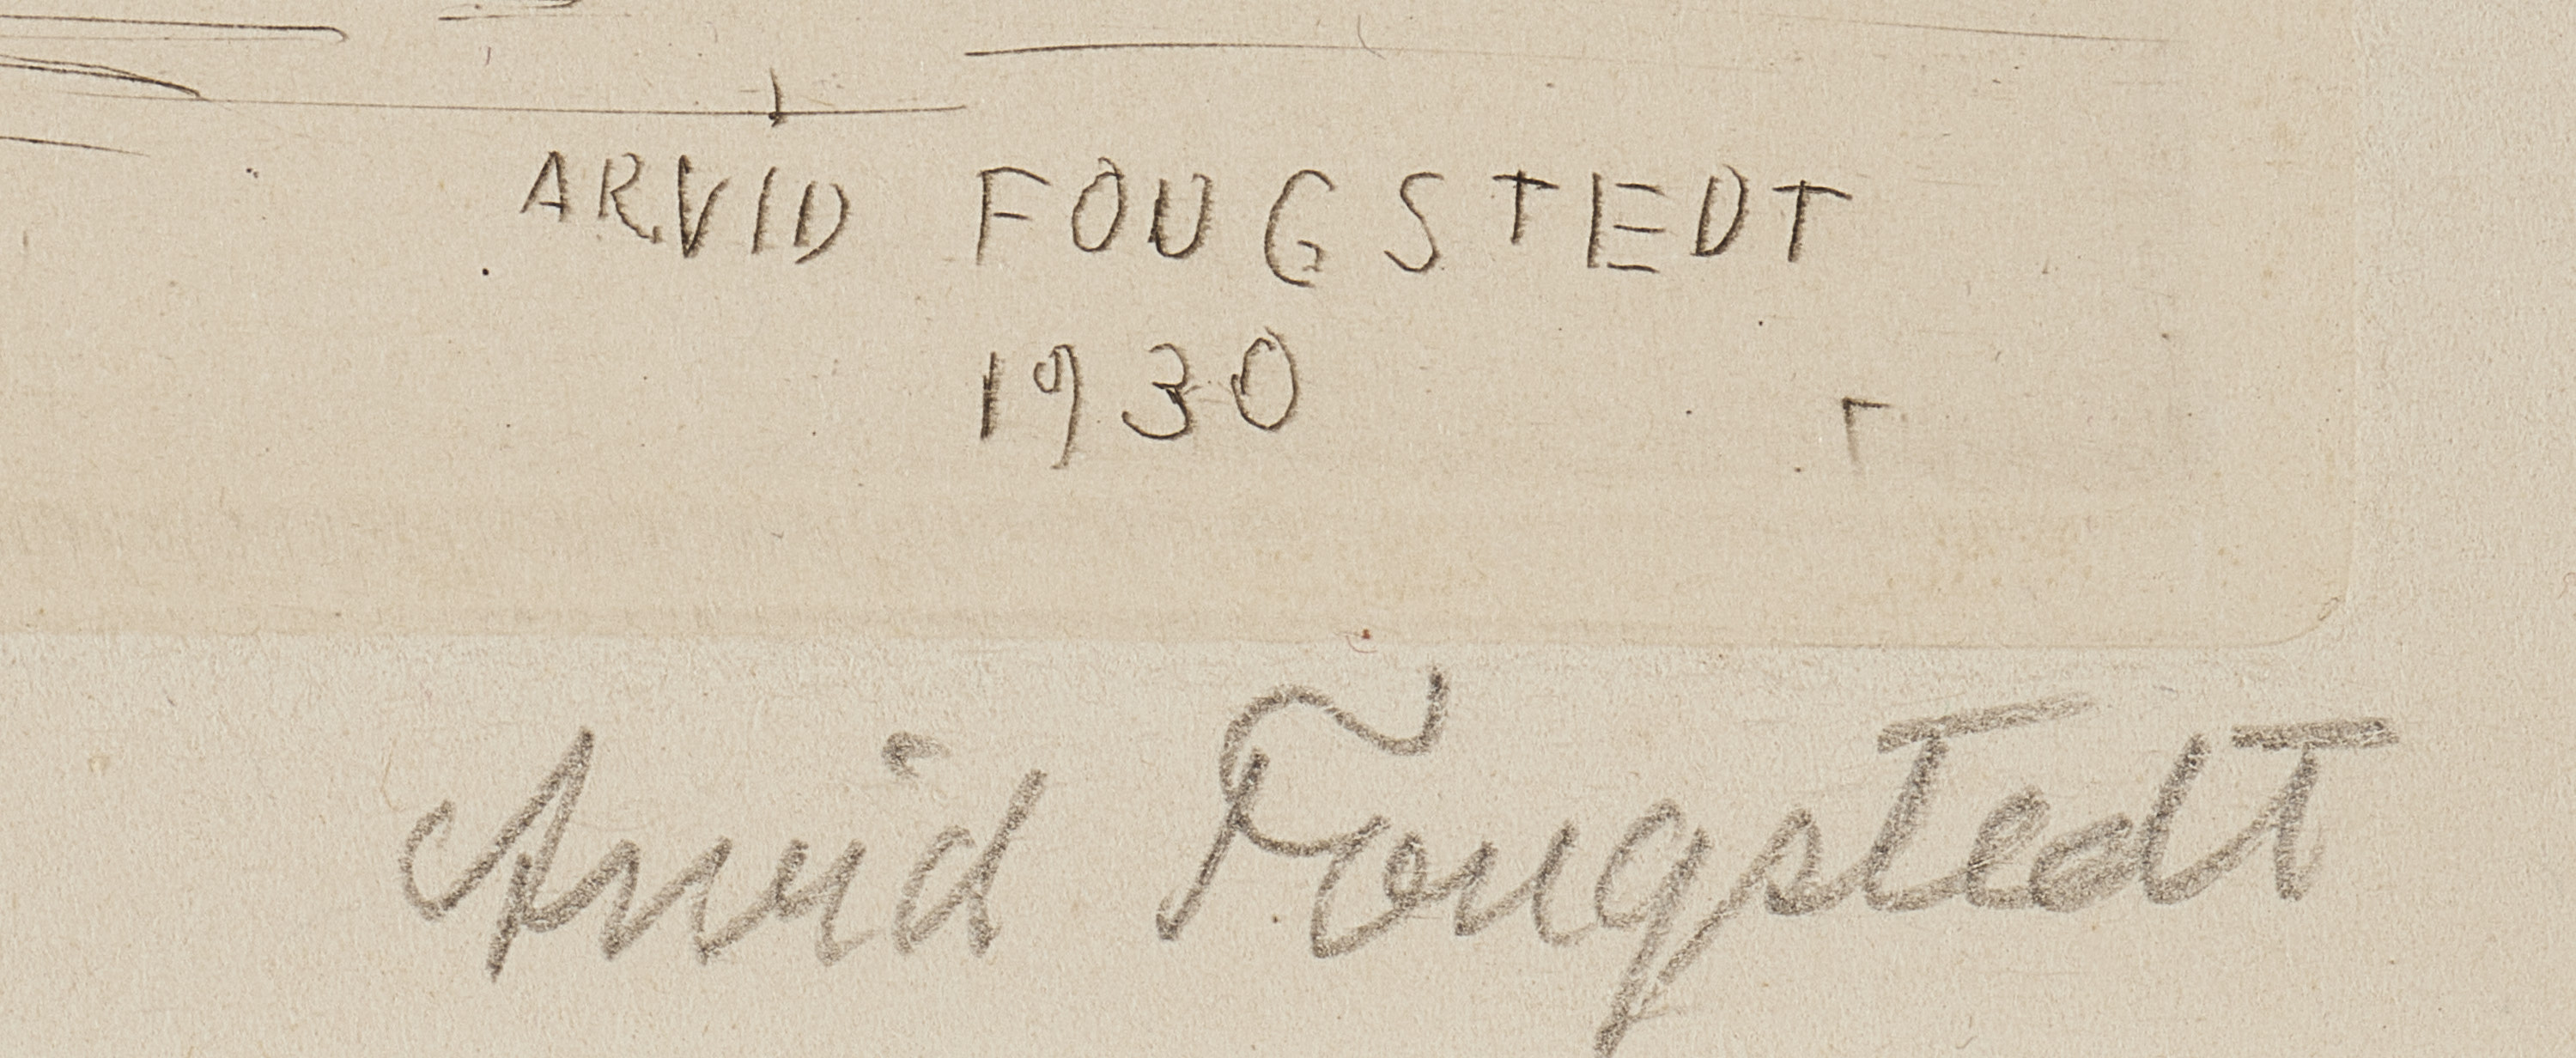 ARVID FOUGSTEDT
1930
Arvid Fougstedt